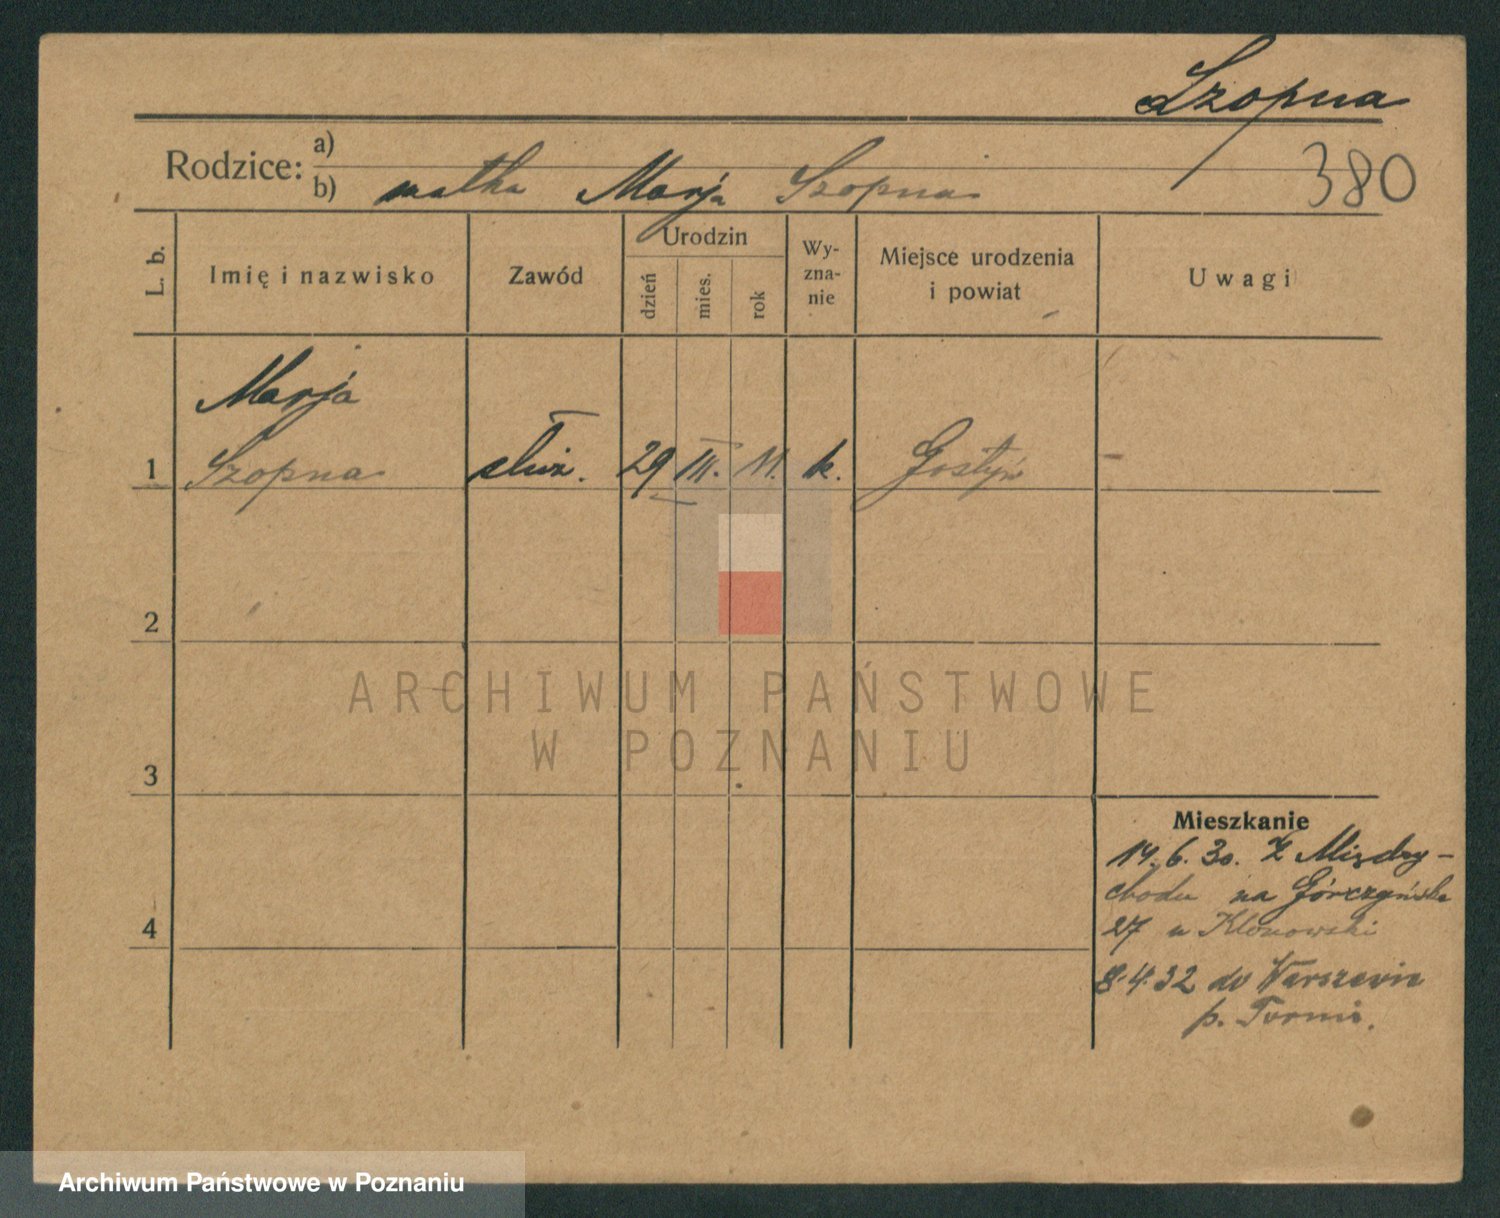 Szopna
Rodzice: a)
b) matka Marja Szopna
380
L. b.
Imię i nazwisko
Zawód
Urodzin
dzień
mies.
rok
Wy-
zna-
nie
Miejsce urodzenia
i powiat
Uwagi
Marja
1 Szopna służ. 29 III. 11. k. Gostyń
2
3
4
Mieszkanie
14. 6. 30. z Między-
chodu na Górczyńska
27 u Klonowski
8.4.32 do Warszawie
p.
ARCHIWUM PAŃSTWOWE
W POZNANIU
Archiwum Państwowe w Poznaniu